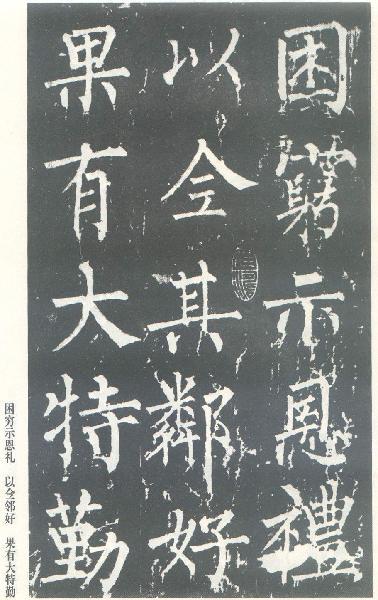 困窮示恩禮
以令其鄰好
果有大特勤
困穷示恩礼　以令邻好　果有大特勤